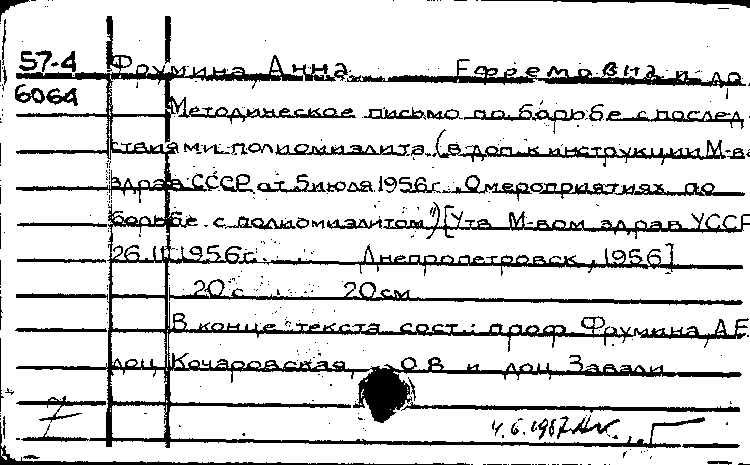 57-4 Фрумина, Анна Ефремовна и др.
6064
Методическое письмо по борьбе с послед-
ствиями полиомиэлита (в доп. к инструкции М-ва
здрав СССР от 5 июля 1956г. „О мероприятиях по
борьбе с полиомиэлитом") [Утв М-вом здрав УССР
26 1956г. Днепропетровск, 1956]
20 с. 20 см
В конце текста сост.: проф. Фрумина, А Е
доц Кочаровская, О В и доц Завали
7
4.6.1957